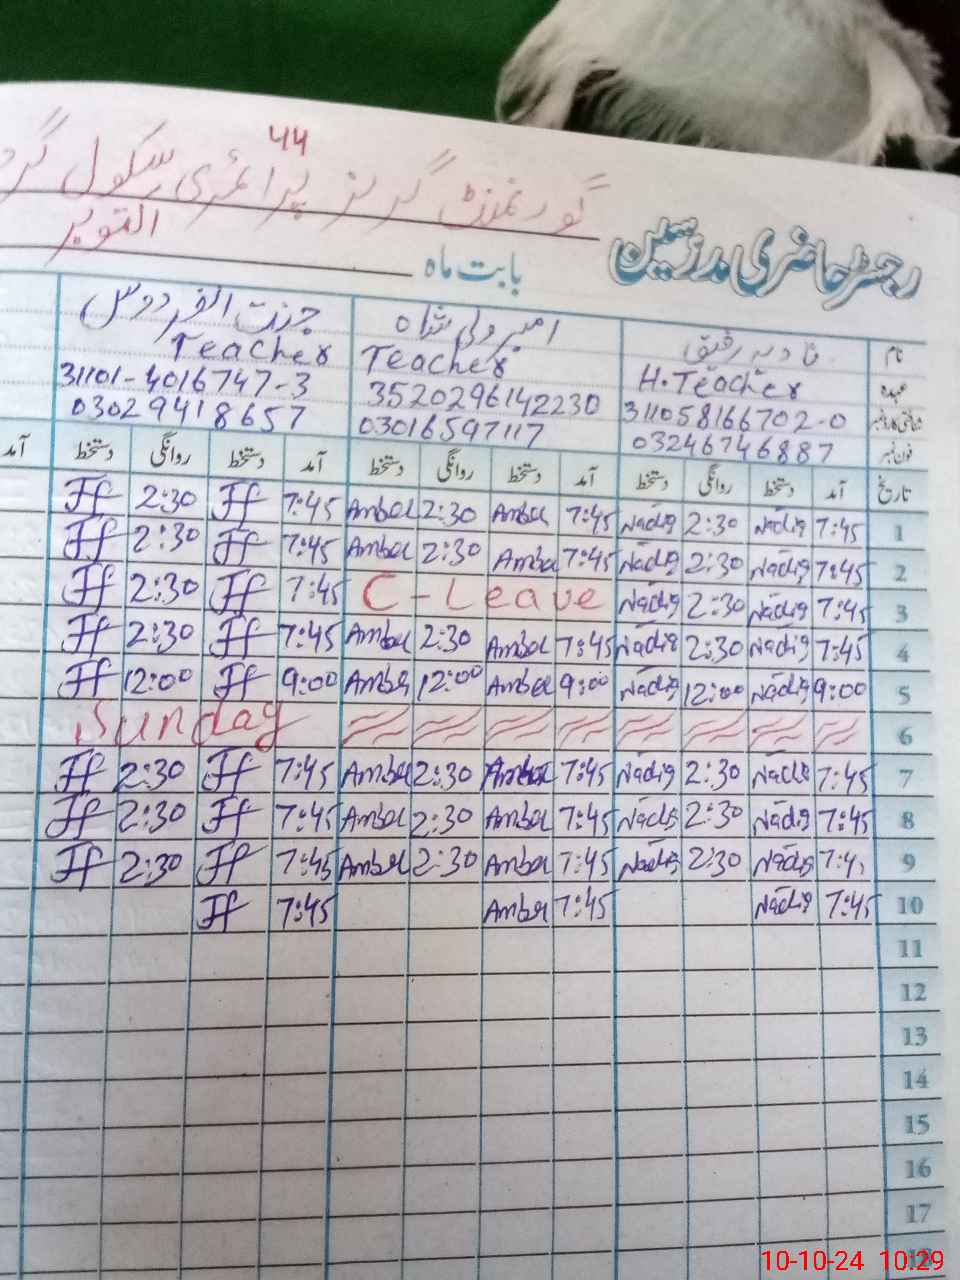 44
گورنمنٹ گرلز پرائمری سکول
رجسٹر حاضری مدرسین
بابت ماہ اکتوبر
نام نادیہ رفیق امبر ولی شاہ جنت الفردوس
عہدہ H.Teacher Teacher Teacher
شناختی کارڈ نمبر 311058166702-0 3520296142230 31101-4016747-3
فون نمبر 03246746887 03016597117 03029418657
تاریخ آمد دستخط روانگی دستخط آمد دستخط روانگی دستخط آمد دستخط روانگی دستخط آمد
1 7:45 Nadia 2:30 Nadia 7:45 Amber 2:30 Amber 7:45 Jf 2:30 Jf
2 7:45 Nadia 2:30 Nadia 7:45 Amber 2:30 Amber 7:45 Jf 2:30 Jf
3 7:45 Nadia 2:30 Nadia C-Leave 7:45 Jf 2:30 Jf
4 7:45 Nadia 2:30 Nadia 7:45 Amber 2:30 Amber 7:45 Jf 2:30 Jf
5 9:00 Nadia 12:00 Nadia 9:00 Amber 12:00 Amber 9:00 Jf 12:00 Jf
6 Sunday
7 7:45 Nadia 2:30 Nadia 7:45 Amber 2:30 Amber 7:45 Jf 2:30 Jf
8 7:45 Nadia 2:30 Nadia 7:45 Amber 2:30 Amber 7:45 Jf 2:30 Jf
9 7:45 Nadia 2:30 Nadia 7:45 Amber 2:30 Amber 7:45 Jf 2:30 Jf
10 7:45 Nadia 7:45 Amber 7:45 Jf
11
12
13
14
15
16
17
18
10-10-24 10:29